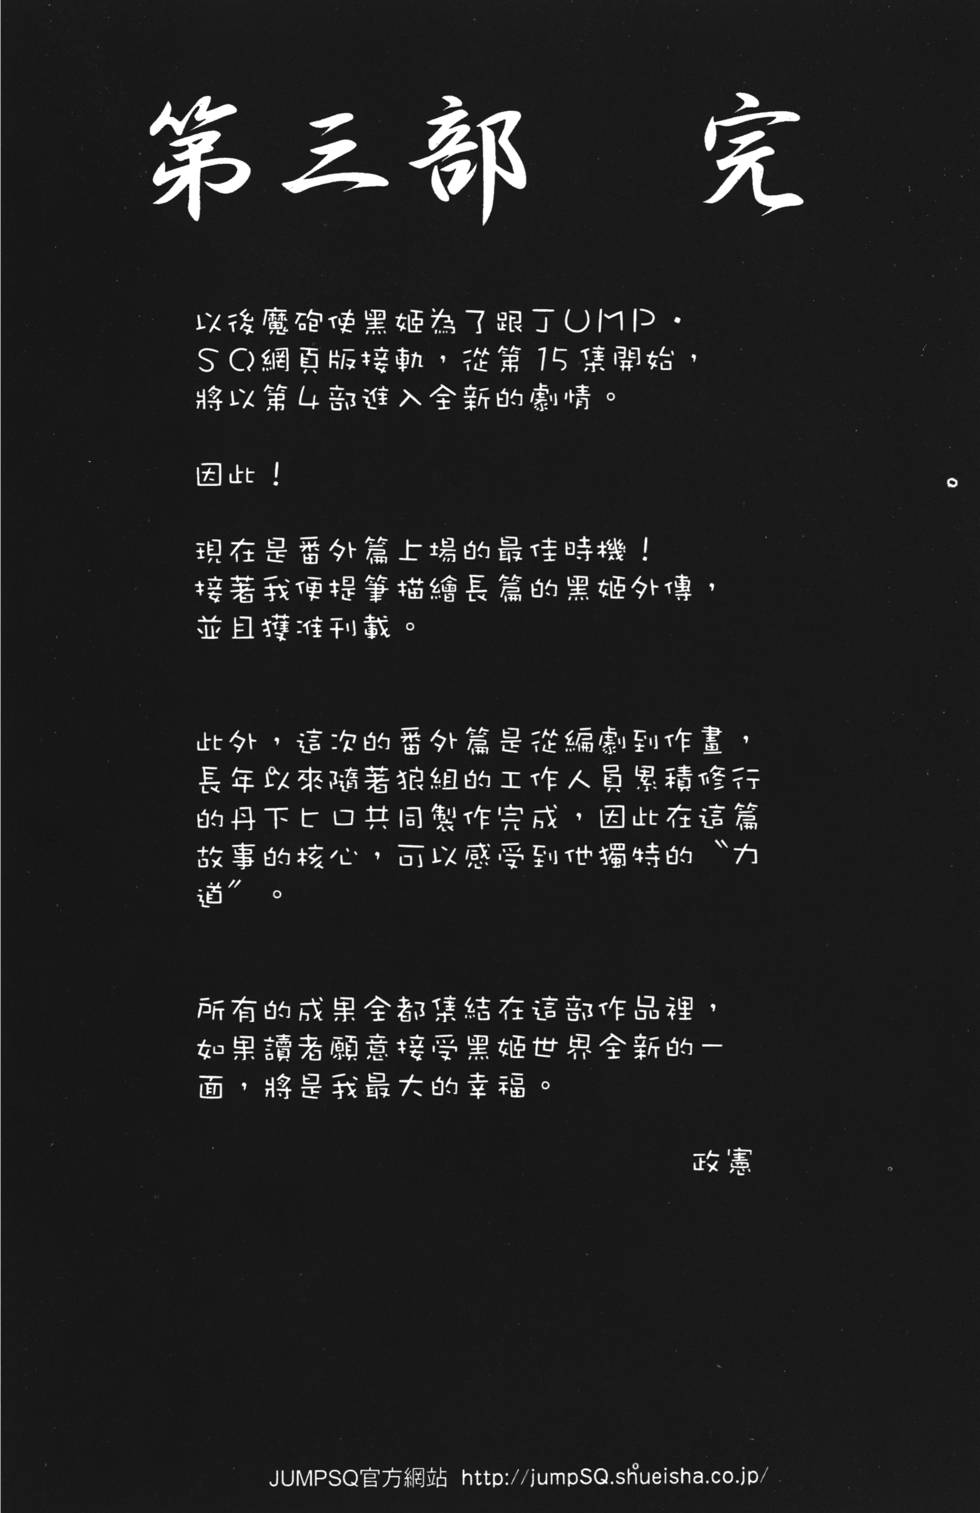 第三部　完
以後魔砲使黑姬為了跟JUMP・
SQ網頁版接軌，從第15集開始，
將以第4部進入全新的劇情。
因此！
現在是番外篇上場的最佳時機！
接著我便提筆描繪長篇的黑姬外傳，
並且獲准刊載。
此外，這次的番外篇是從編劇到作畫，
長年以來隨著狼組的工作人員累積修行
的丹下ヒロ共同製作完成，因此在這篇
故事的核心，可以感受到他獨特的〝力
道〞。
所有的成果全都集結在這部作品裡，
如果讀者願意接受黑姬世界全新的一
面，將是我最大的幸福。
政憲
JUMPSQ官方網站 http://jumpSQ.shueisha.co.jp/